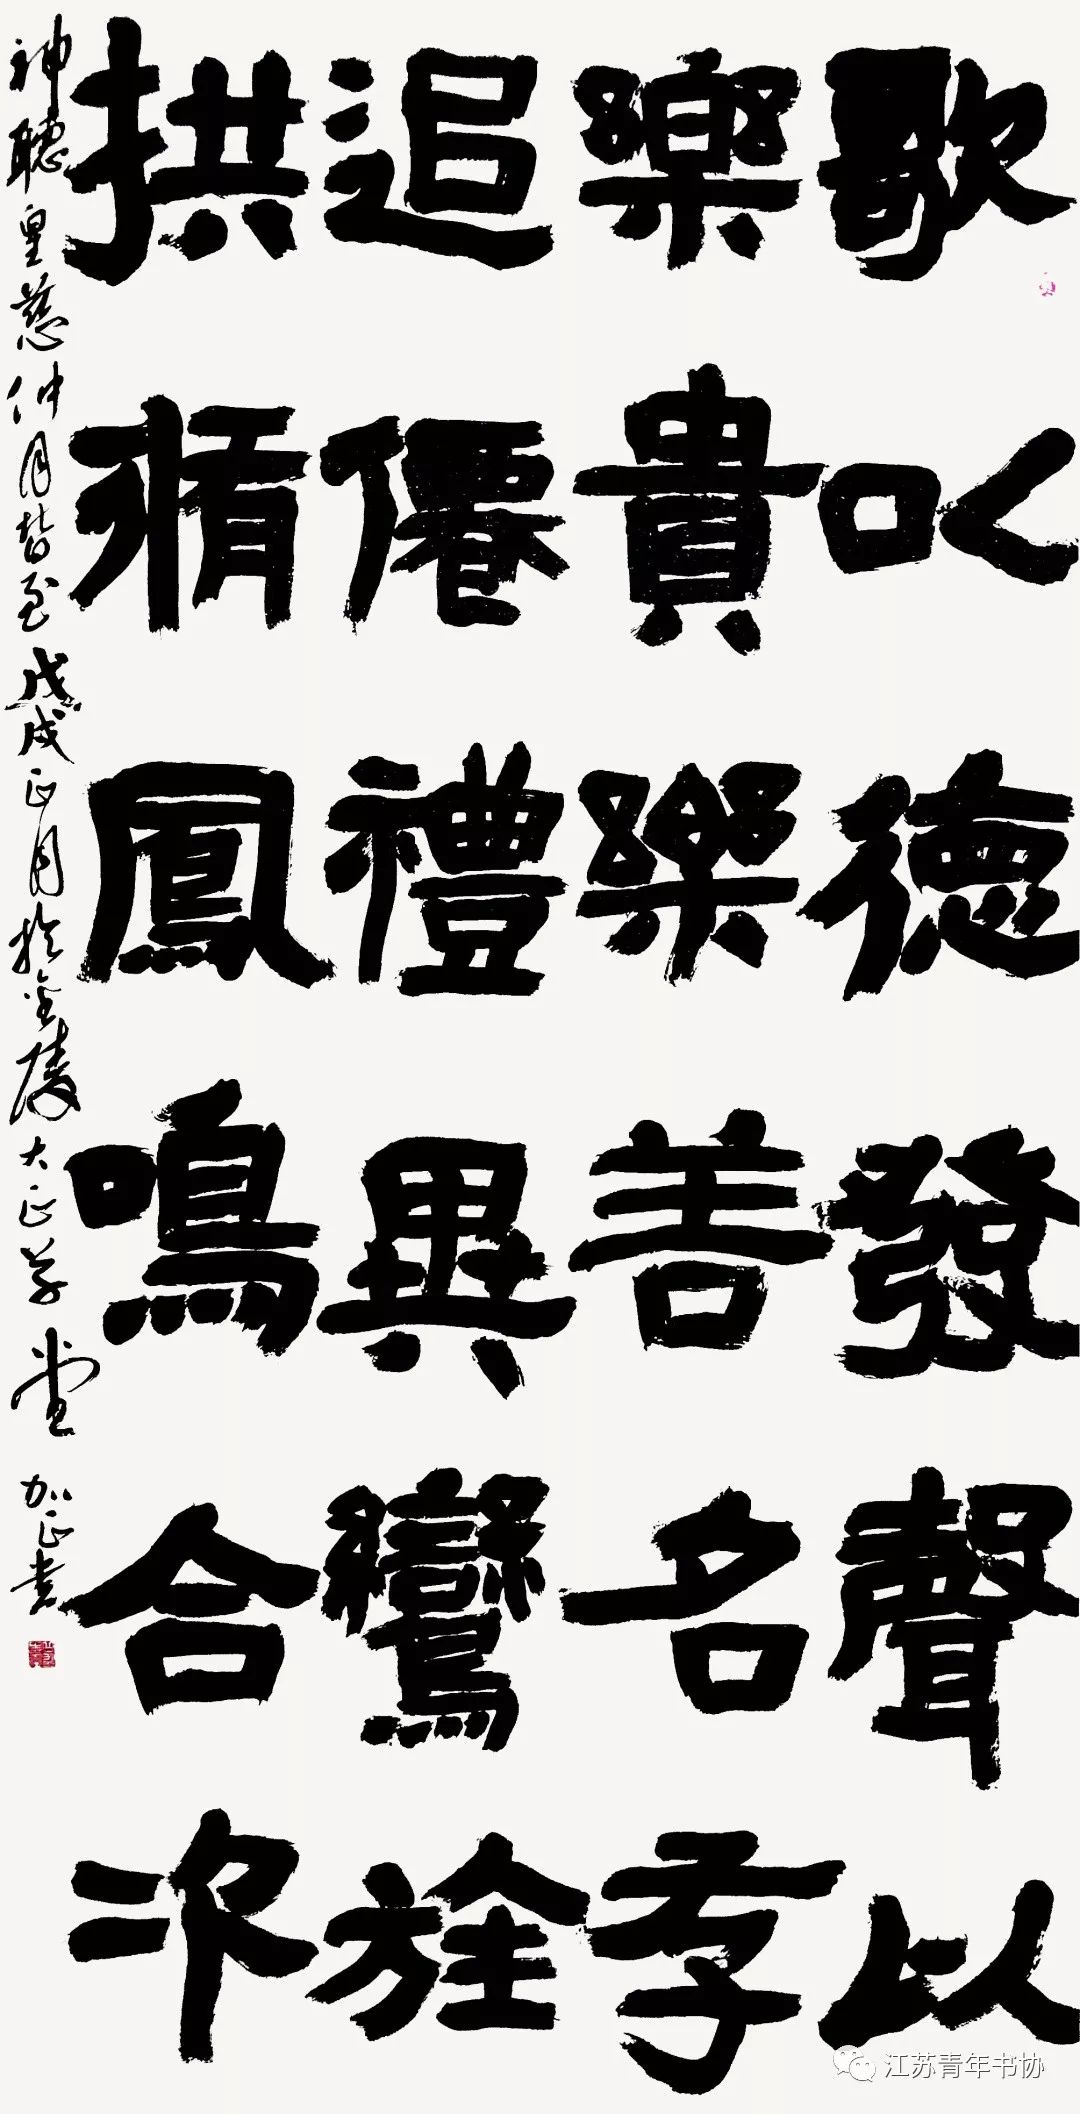 歌㕥德發聲以
樂貴樂善名存
追僊禮異鸞旌
拱脩鳳鳴合次
神聽皇慈仲月皆至戊戌正月於金陵大正草堂加正書
江苏青年书协